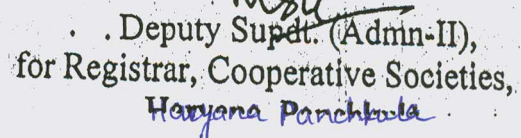 . . Deputy Supdt. (Admn-II),
for Registrar, Cooperative Societies,
Haryana Panchkula